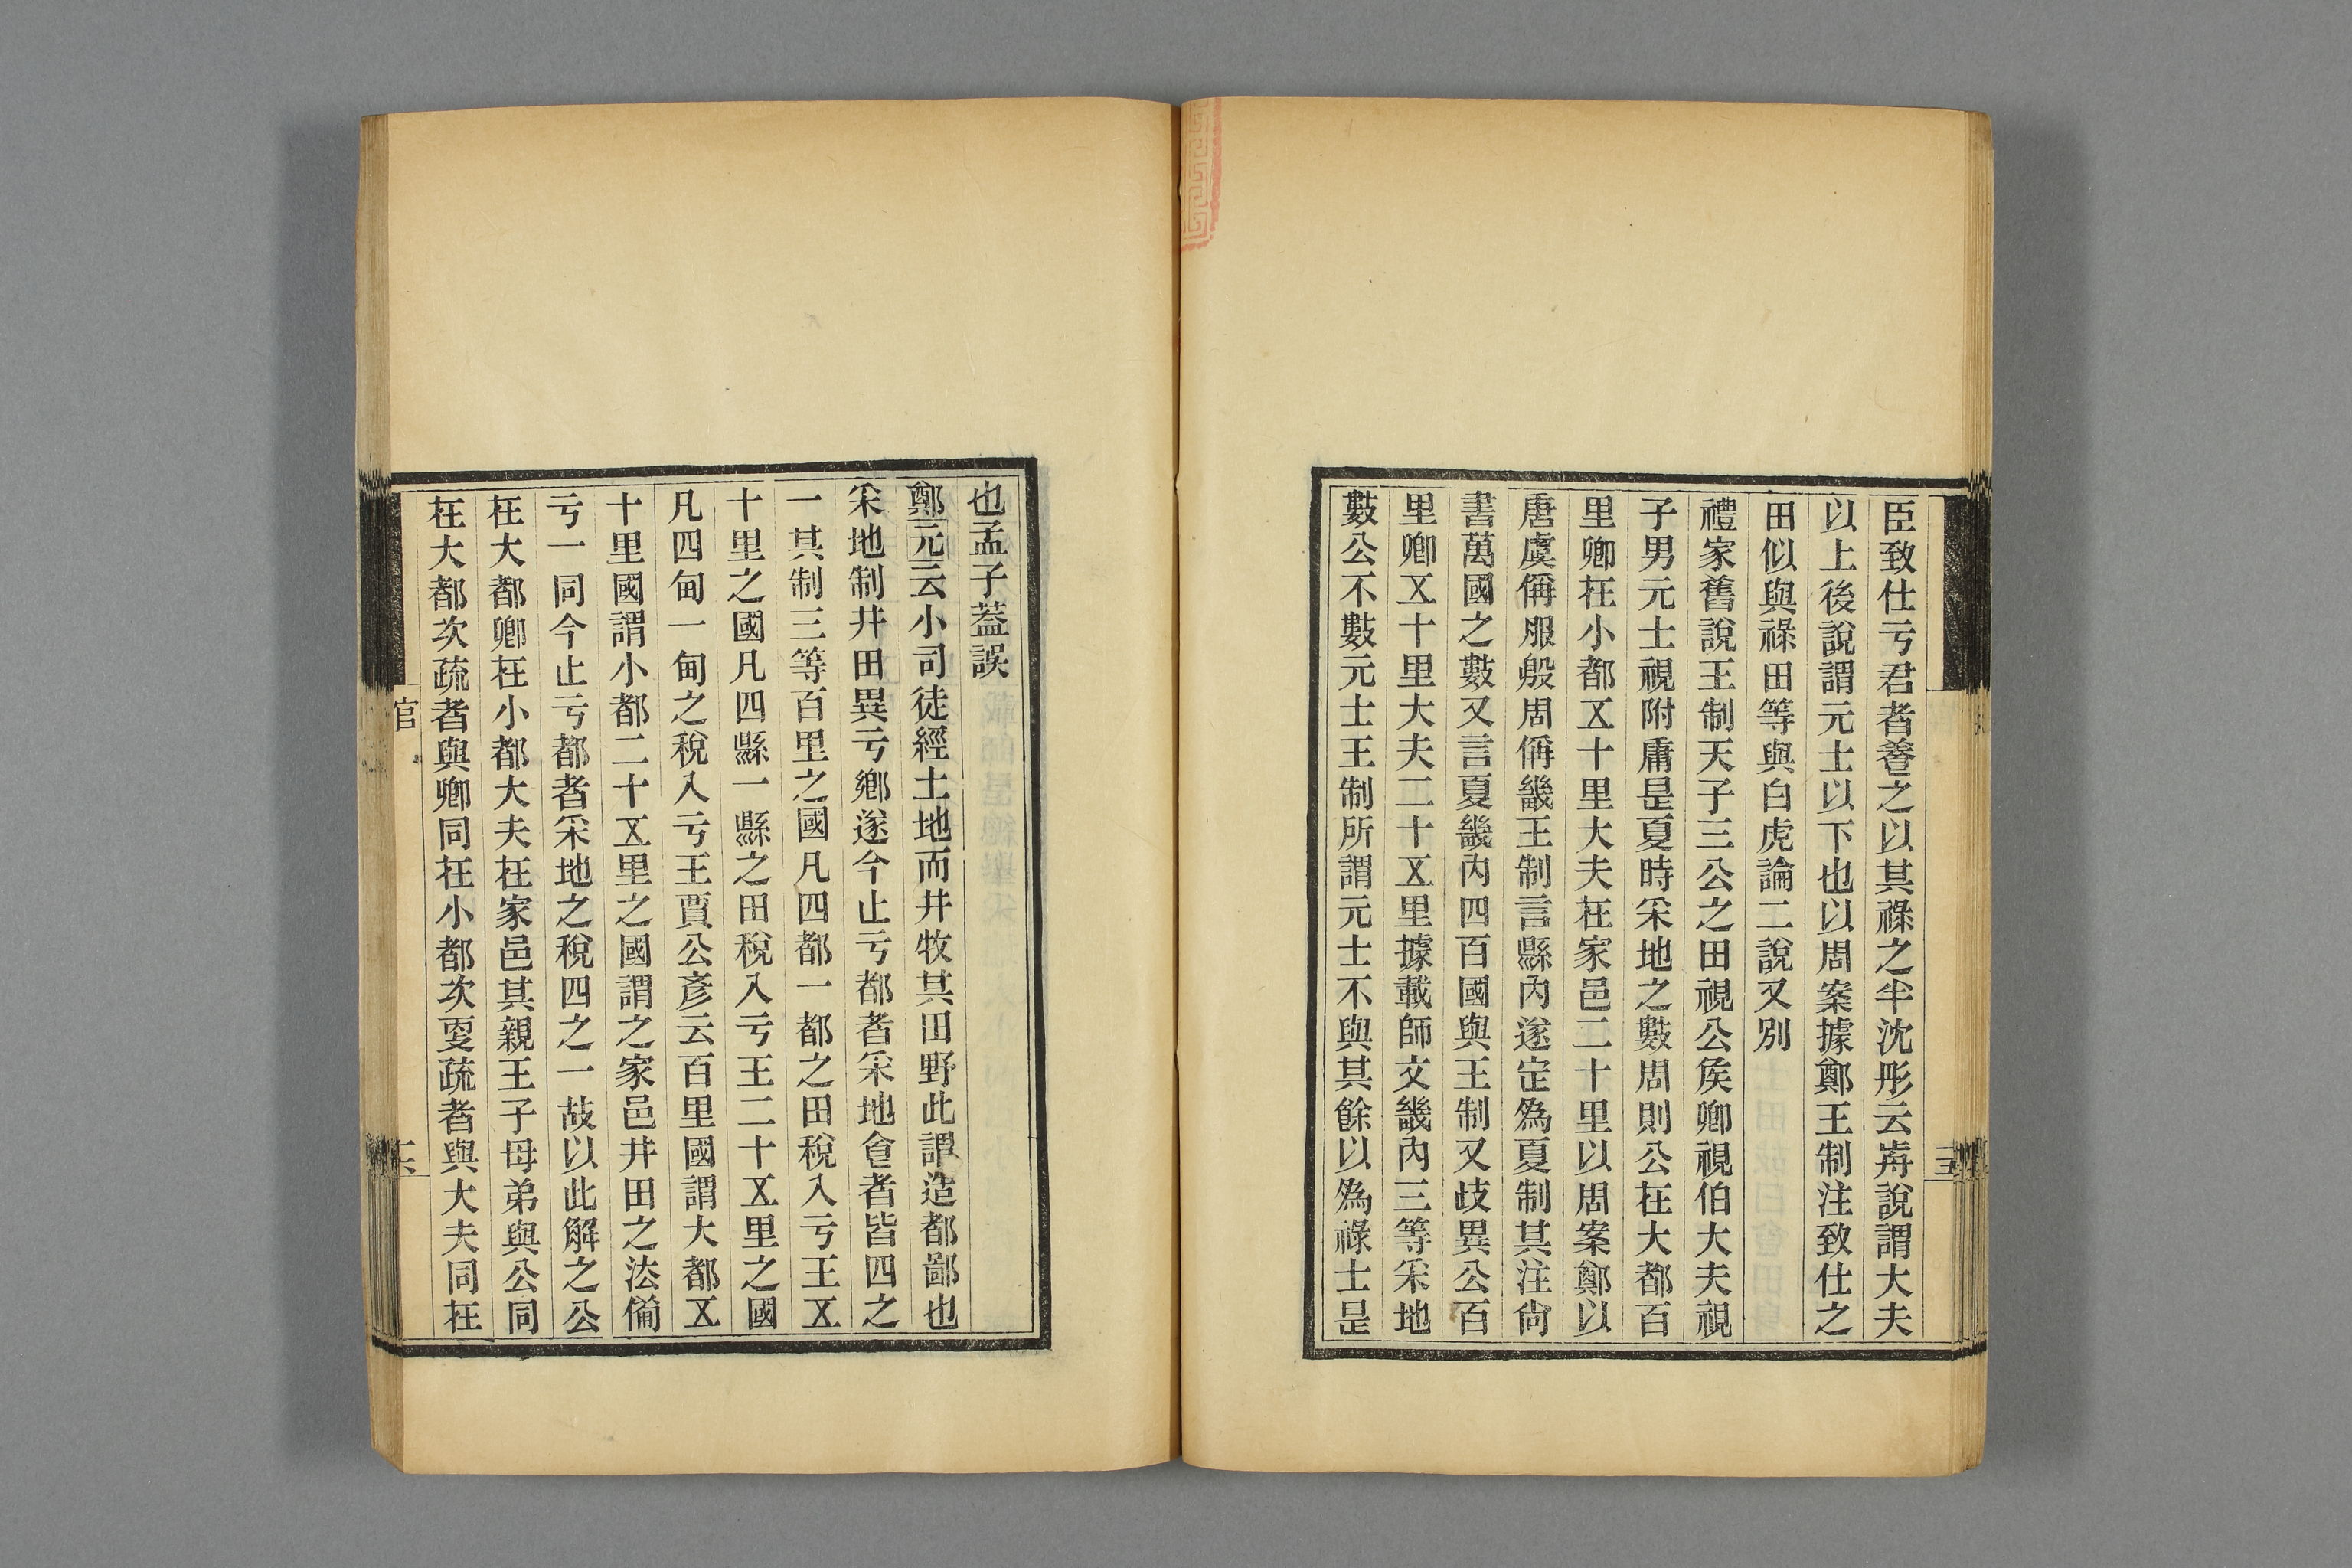 臣致仕亏君者養之以其祿之半沈彤云歬說謂大夫
以上後說謂元士以下也以周案據鄭王制注致仕之
田似與祿田等與白虎論二說又別
禮家舊說王制天子三公之田視公矦卿視伯大夫視
子男元士視附庸是夏時采地之數周則公在大都百
里卿在小都㐅十里大夫在家邑二十里以周案鄭以
唐虞偁服殷周偁畿王制言縣內遂定爲夏制其注尙
書萬國之數又言夏畿內四百國與王制又歧異公百
里卿㐅十里大夫二十㐅里據載師文畿內三等采地
數公不數元士王制所謂元士不與其餘以爲祿士是
也孟子蓋誤
鄭元云小司徒經土地而井牧其田野此謂造都鄙也
采地制井田異亏鄉遂今止亏都者采地食者皆四之
一其制三等百里之國凡四都一都之田稅入亏王㐅
十里之國凡四縣一縣之田稅入亏王二十㐅里之國
凡四甸一甸之稅入亏王賈公彥云百里國謂大都㐅
十里國謂小都二十㐅里之國謂之家邑井田之法備
亏一同今止亏都者采地之稅四之一故以此解之公
在大都卿在小都大夫在家邑其親王子母弟與公同
在大都次疏者與卿同在小都次更疏者與大夫同在
官